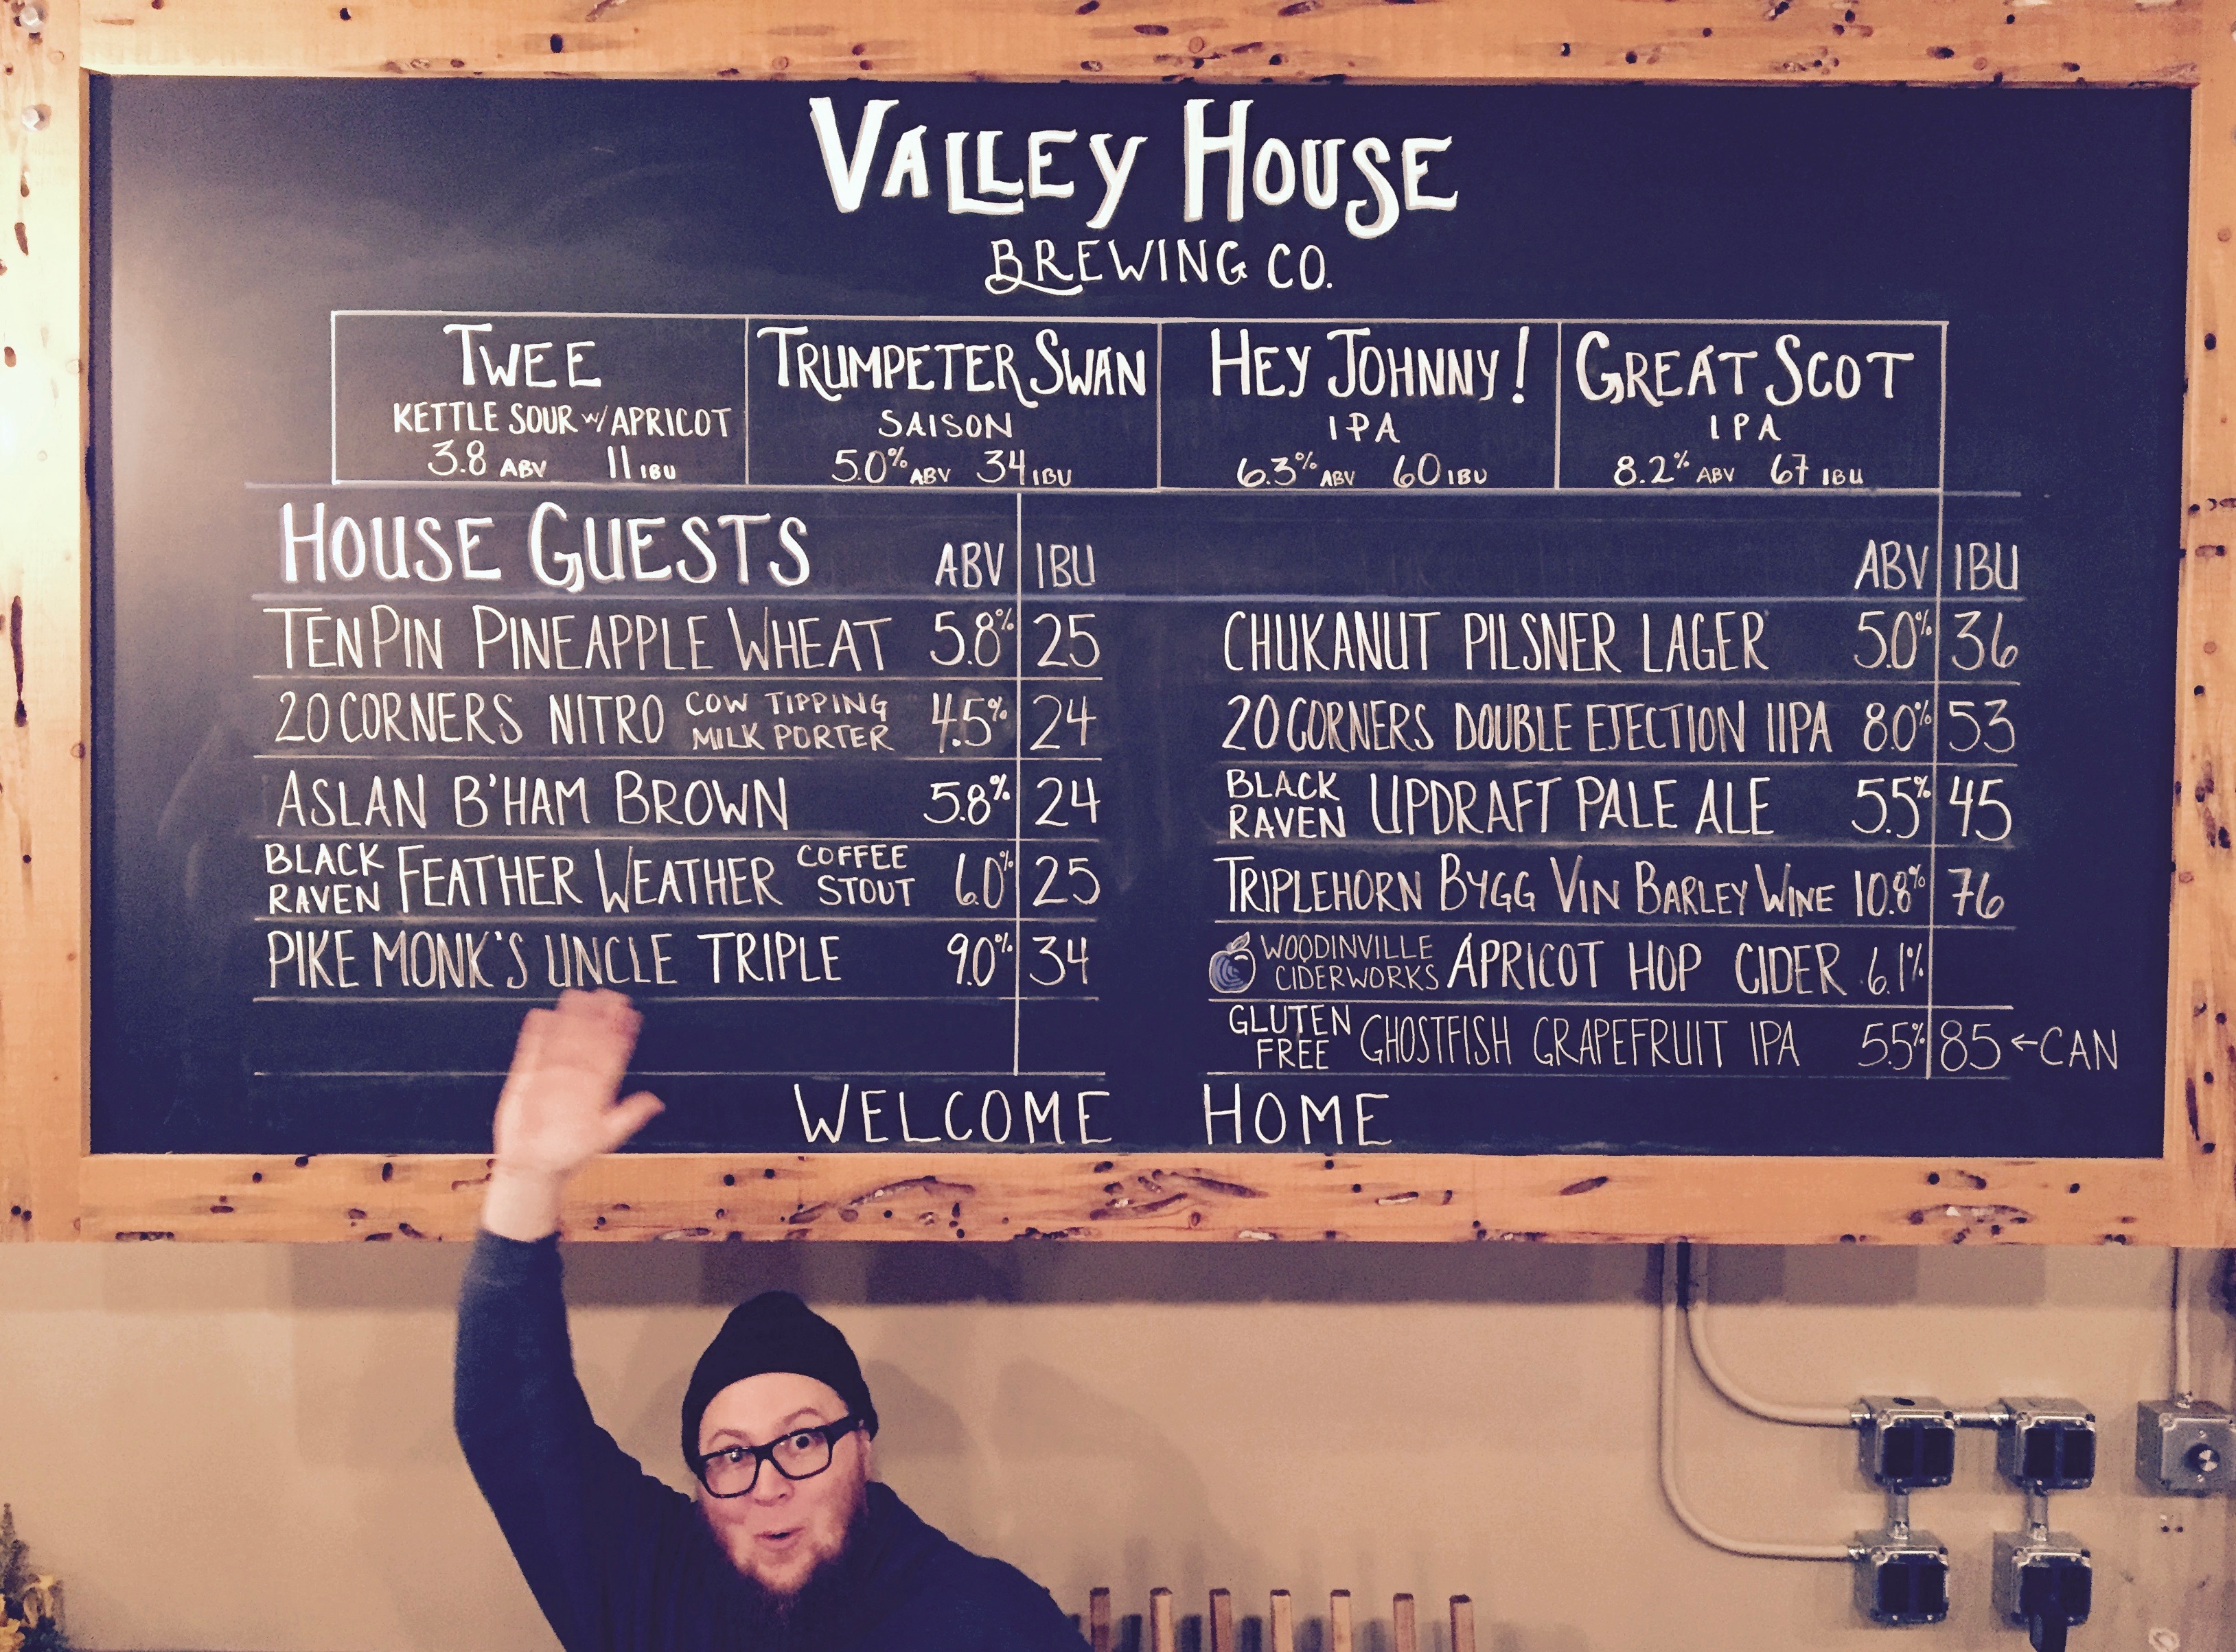 VALLEY HOUSE
BREWING CO.
TWEE
KETTLE SOUR W/ APRICOT
3.8 ABV 11 IBU
TRUMPETER SWAN
SAISON
5.0% ABV 34 IBU
HEY JOHNNY!
IPA
6.3% ABV 60 IBU
GREAT SCOT
IPA
8.2% ABV 67 IBU
HOUSE GUESTS ABV IBU
TEN PIN PINEAPPLE WHEAT 5.8% 25
20 CORNERS NITRO COW TIPPING MILK PORTER 4.5% 24
ASLAN B'HAM BROWN 5.8% 24
BLACK RAVEN FEATHER WEATHER COFFEE STOUT 6.0% 25
PIKE MONK'S UNCLE TRIPLE 9.0% 34
ABV IBU
CHUKANUT PILSNER LAGER 5.0% 36
20 CORNERS DOUBLE EJECTION IIPA 8.0% 53
BLACK RAVEN UPDRAFT PALE ALE 5.5% 45
TRIPLEHORN BYGG VIN BARLEY WINE 10.8% 76
WOODINVILLE CIDERWORKS APRICOT HOP CIDER 6.1%
GLUTEN FREE GHOSTFISH GRAPEFRUIT IPA 5.5% 85 ←CAN
WELCOME HOME